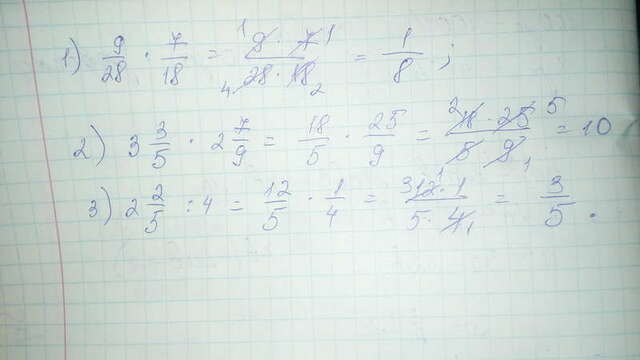 1) 9/28 · 7/18 = 9 · 7 / 28 · 18 = 1/8 ;
2) 3 3/5 · 2 7/9 = 18/5 · 25/9 = 18 · 25 / 5 · 9 = 10
3) 2 2/5 : 4 = 12/5 · 1/4 = 12 · 1 / 5 · 4 = 3/5 .